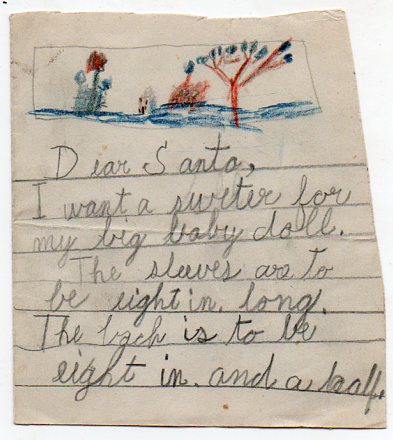 Dear Santa,
I want a sweter for
my big baby doll.
The sleeves are to
be eight in. long.
The back is to be
eight in. and a half.